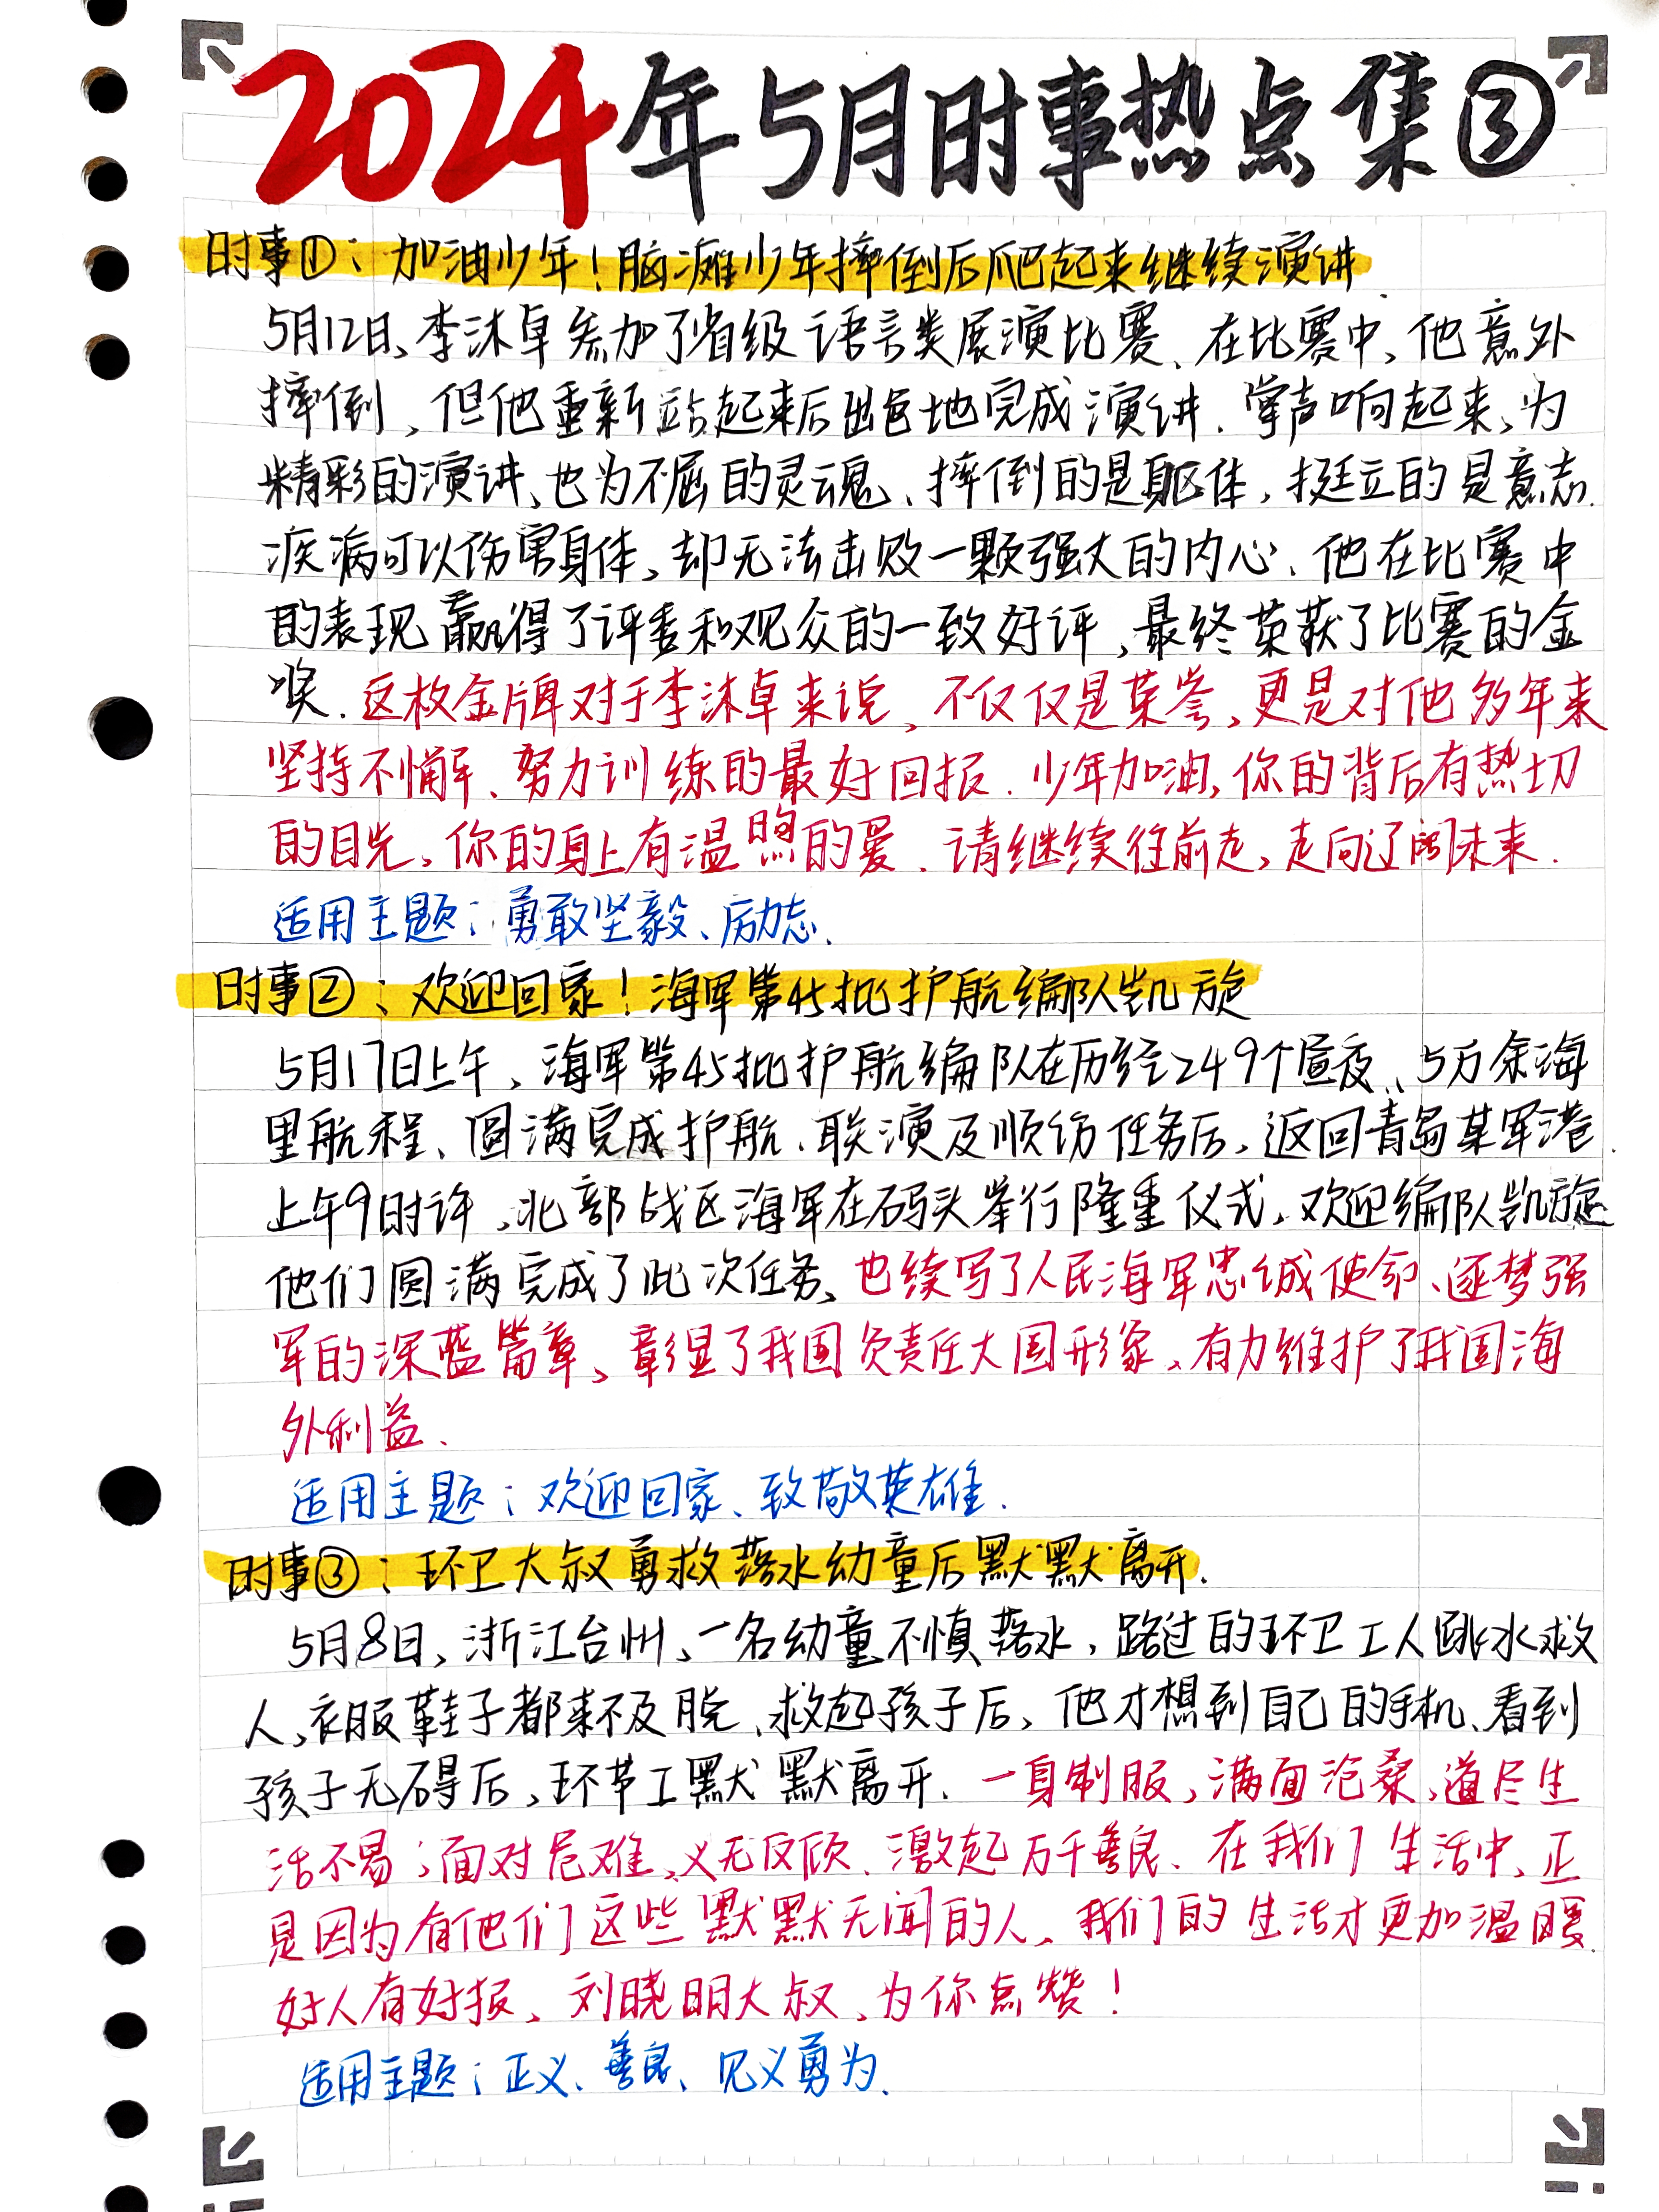 2024年5月时事热点集③
时事①：加油少年！脑瘫少年摔倒后爬起来继续演讲.
5月12日,李沐卓参加了省级语言类展演比赛、在比赛中,他意外
摔倒,但他重新站起来后出色地完成演讲.掌声响起来,为
精彩的演讲、也为不屈的灵魂、摔倒的是躯体,挺立的是意志.
疾病可以伤害身体,却无法击败一颗强大的内心、他在比赛中
的表现赢得了评委和观众的一致好评,最终荣获了比赛的金
奖.这枚金牌对于李沐卓来说,不仅仅是荣誉,更是对他多年来
坚持不懈、努力训练的最好回报.少年加油,你的背后有热切
的目光,你的身上有温煦的爱.请继续往前走,走向辽阔未来.
适用主题：勇敢坚毅、励志.
时事②：欢迎回家！海军第45批护航编队凯旋
5月17日上午,海军第45批护航编队在历经249个昼夜、5万余海
里航程、圆满完成护航、联演及顺访任务后,返回青岛某军港.
上午9时许,北部战区海军在码头举行隆重仪式,欢迎编队凯旋
他们圆满完成了此次任务,也续写了人民海军忠诚使命、逐梦强
军的深蓝篇章,彰显了我国负责任大国形象,有力维护了我国海
外利益.
适用主题：欢迎回家、致敬英雄.
时事③：环卫大叔勇救落水幼童后默默离开.
5月8日,浙江台州,一名幼童不慎落水,路过的环卫工人跳水救
人,衣服鞋子都来不及脱、救起孩子后,他才想到自己的手机、看到
孩子无碍后,环节工默默离开.一身制服,满面沧桑,道尽生
活不易；面对危难,义无反顾、激起万千善良.在我们生活中,正
是因为有他们这些默默无闻的人,我们的生活才更加温暖.
好人有好报、刘晓明大叔、为你点赞！
适用主题：正义、善良、见义勇为.